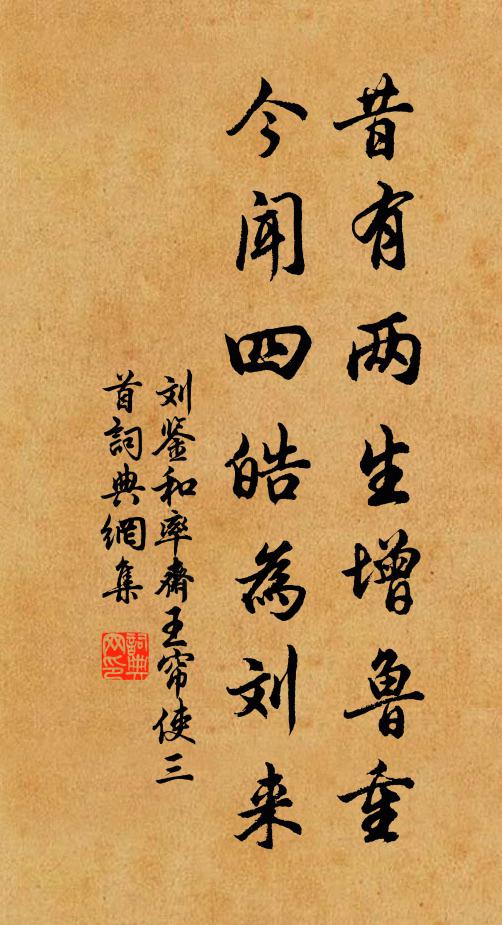 昔有两生增鲁重
今闻四皓為刘来
刘鉴和率斋王帘使三
首詞典網集
詞典
网印